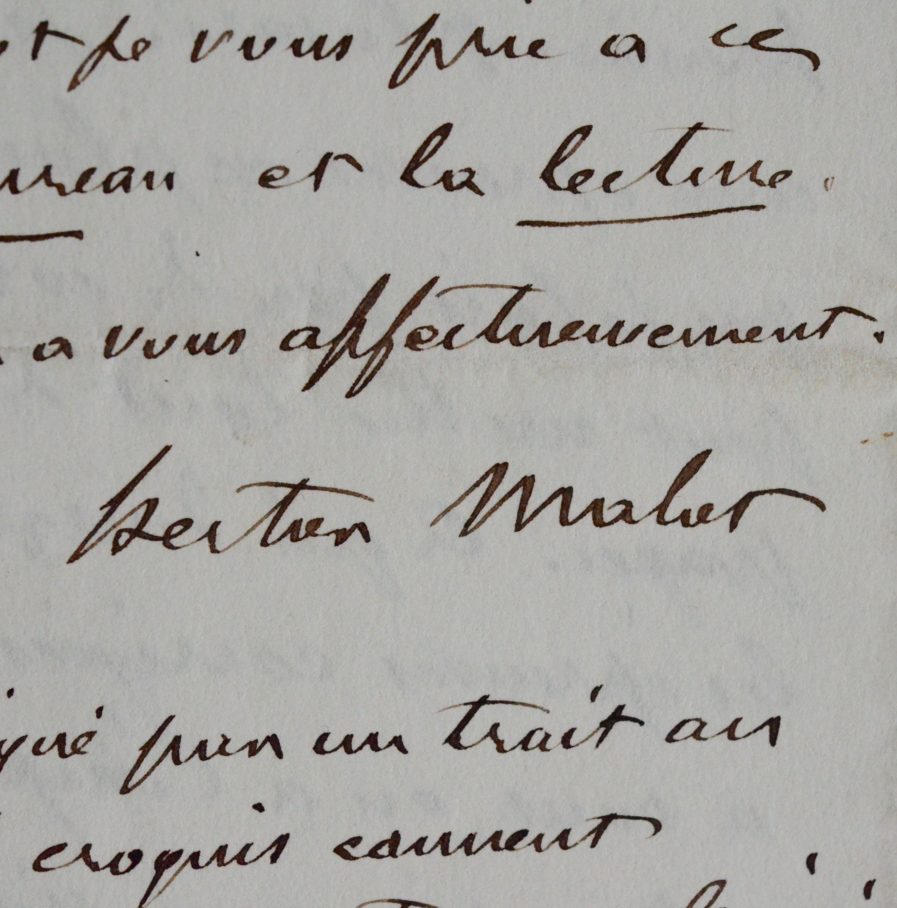 et je vous prie a ce
ureau et la lecture.
a vous affectueusement.
Hector Malot
iqué par un trait au
croquis comment